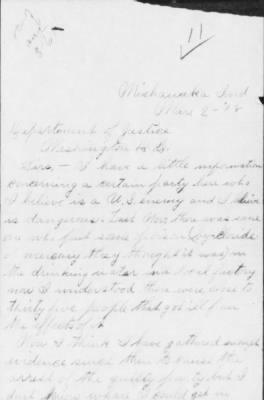 11
Mishawaka Ind
Mar 2-'18
Department of Justice
Washington D.C.
Sirs, - I have a little information
concerning a certain party here who
I believe is a U.S. enemy and I think
is dangerous. Last Nov there was some
one who put some poison (
of mercury they thought it was) in
the drinking water in a local factory
now I understood there were close to
thirty five people that got ill from
the effects of it
Now I think I have gathered enough
evidence since then to cause the
arrest of the guilty party but I
don't know where I could get in